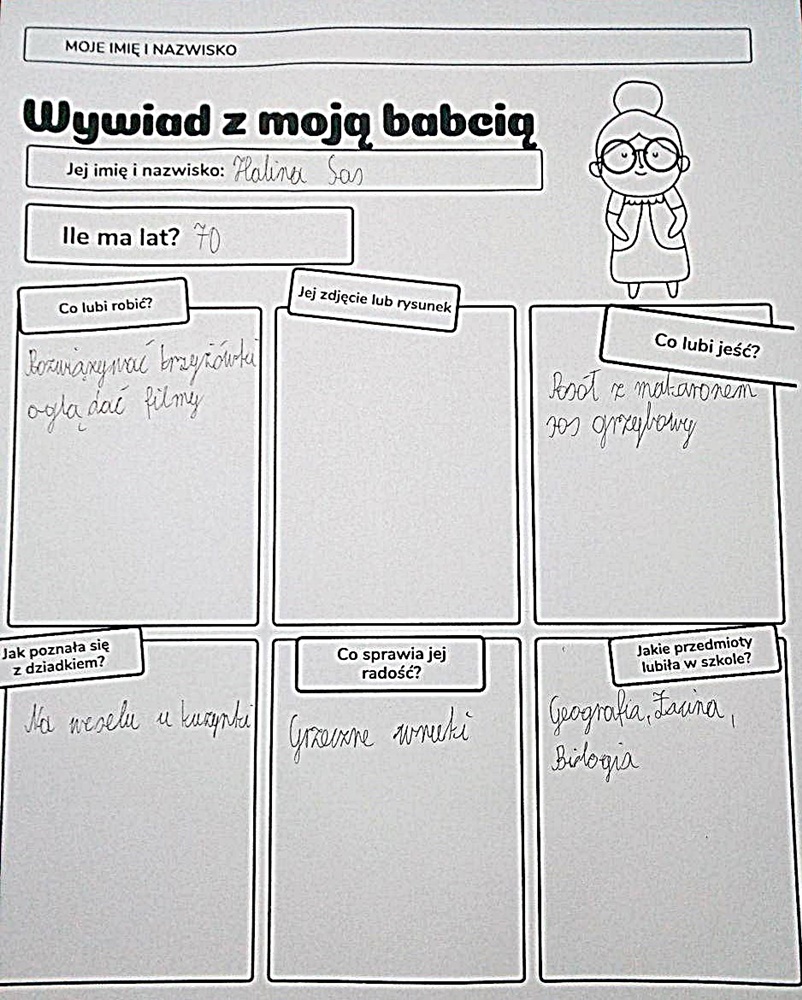 MOJE IMIĘ I NAZWISKO
Wywiad z moją babcią
Jej imię i nazwisko: Halina Sas
Ile ma lat? 70
Co lubi robić?
Rozwiązywać krzyżówki
oglądać filmy
Jej zdjęcie lub rysunek
Co lubi jeść?
Rosół z makaronem
sos grzybowy
Jak poznała się
z dziadkiem?
Na weselu u kuzynki
Co sprawia jej
radość?
Grzeczne wnuki
Jakie przedmioty
lubiła w szkole?
Geografia, Łacina,
Biologia